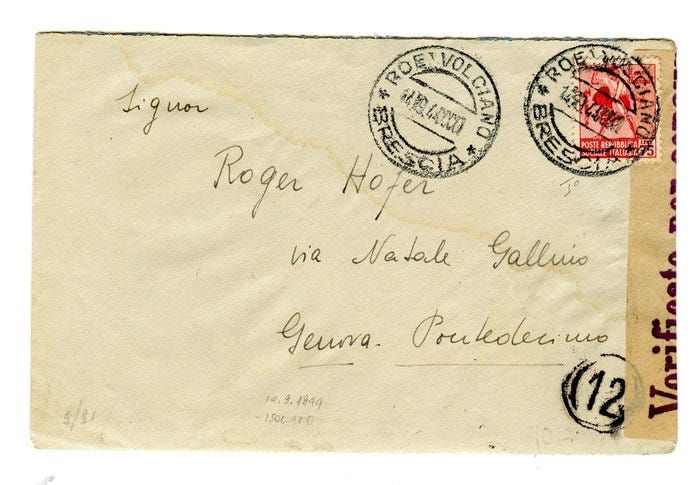 * ROE' VOLCIANO *
BRESCIA
* ROE' VOLCIANO
BRESCIA
POSTE REPUBBLICA
SOCIALE ITALIANA
Signor
Roger Hofer
via Natale Gallino
Genova. Pontedecimo
12
Verificato per censura